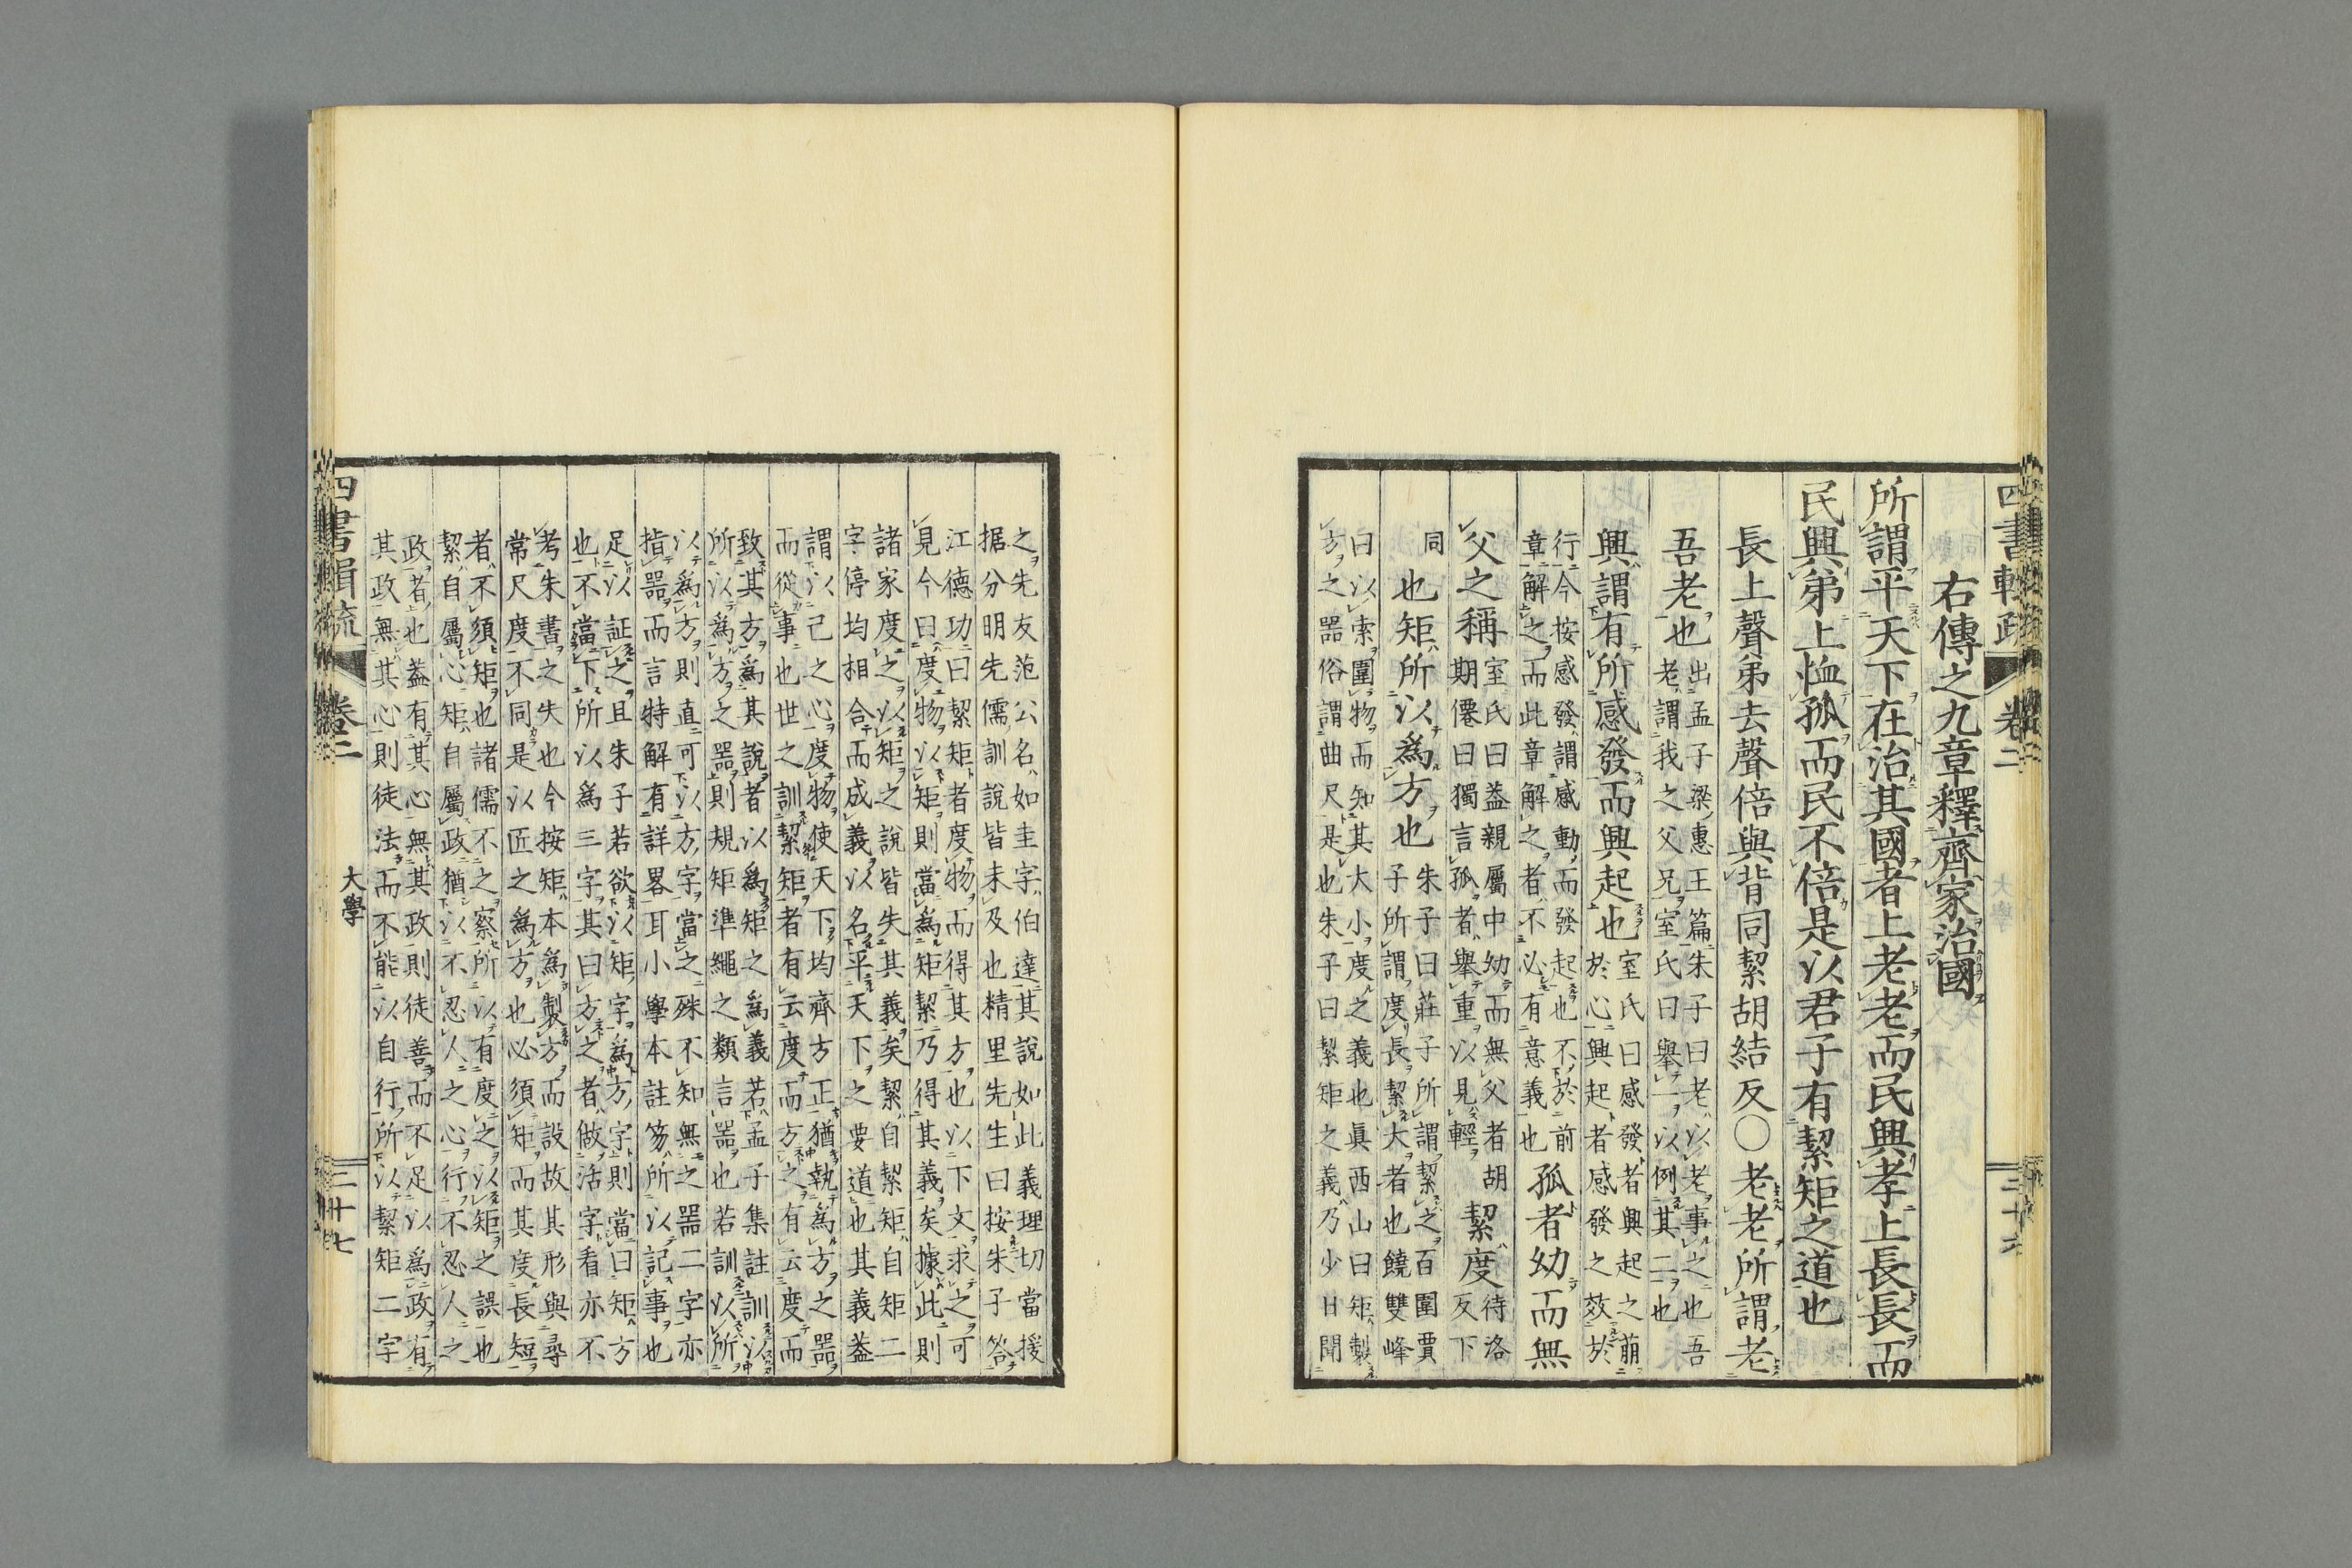 四書輯疏
卷二
三十六
右傳之九章釋齊家治國
所謂平天下在治其國者上老老而民興孝上長長而
民興弟上恤孤而民不倍是以君子有絜矩之道也
長上聲弟去聲倍與背同絜胡結反○老老所謂老
吾老也
出孟子梁惠王篇朱子曰老以老事之也吾
老謂我之父兄室氏曰舉一以例其二也
興謂有所感發而興起也
室氏曰感發者興起之萠
於心興起者感發之效於
行今按感發謂感動而發起也不於前
章解之而此章解之者不必有意義也
孤者幼而無
父之稱
室氏曰益親屬中幼而無父者胡
期僊曰獨言孤者舉重以見輕
絜度
待洛
反下
同
也矩所以爲方也
朱子曰莊子所謂絜之百圍賈
子所謂度長絜大者也饒雙峰
曰以索圍物而知其大小度之義也眞西山曰矩製
方之器俗謂曲尺是也朱子曰絜矩之義乃少日聞
之先友范公名如圭字伯達其說如此義理切當援
据分明先儒訓說皆未及也精里先生曰按朱子答
江德功曰絜矩者度物而得其方也以下文求之可
見今曰度物以矩則當爲矩絜乃得其義矣據此則
諸家度之以矩之說皆失其義矣絜自絜矩自矩二
字停均相合而成義以名平天下之要道也其義葢
謂以己之心度物使天下均齊方正猶執爲方之器
而從事也世之訓絜矩者有云度而方之有云度而
致其方爲其說者以爲矩之爲義若孟子集註訓以
所以爲方之器則規矩準繩之類言器也若訓以所
以爲方則直可以方字當之殊不知無之器二字亦
指器而言特解有詳畧耳小學本註笏所以記事也
足以証之且朱子若欲以矩字爲方字則當曰矩方
也不當下所以爲三字其曰方之者做活字看亦不
考朱書之失也今按矩本爲製方而設故其形與尋
常尺度不同是以匠之爲方也必須矩而其度長短
者不須矩也諸儒不之察所以有度之以矩之誤也
絜自屬心矩自屬政猶以不忍人之心行不忍人之
政者也葢有其心無其政則徒善而不足以爲政有
其政無其心則徒法而不能以自行所以絜矩二字
四書輯疏
卷二
大學
三十七